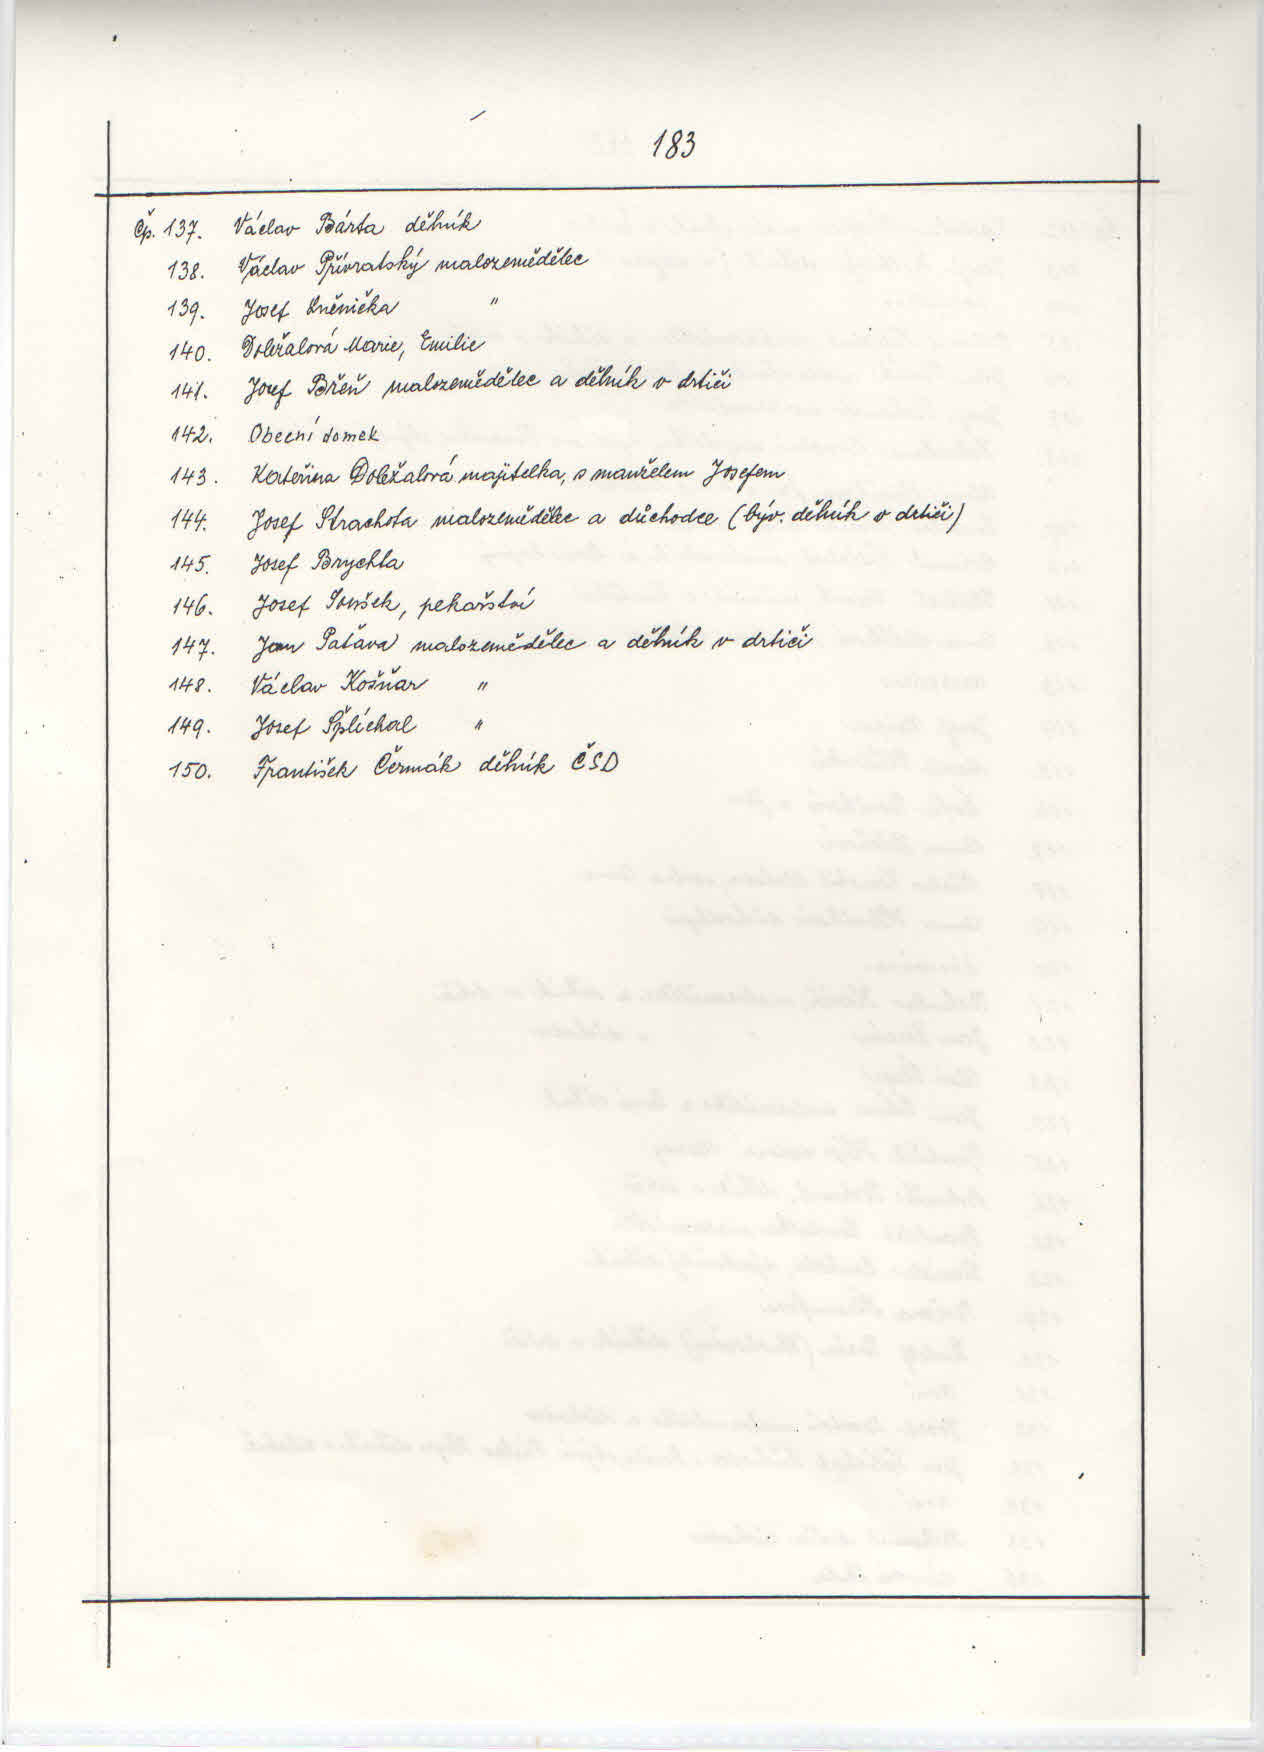 183
Čp. 137. Václav Bárta dělník
138. Václav Přívratský malozemědělec
139. Josef Lněnička "
140. Doležalová Marie, Emilie
141. Josef Břeň malozemědělec a dělník v drtiči
142. Obecní domek
143. Kateřina Doležalová majitelka, s manželem Josefem
144. Josef Strachota malozemědělec a důchodce (býv. dělník v drtiči)
145. Josef Brychta
146. Josef pekařství
147. Jan Paťava malozemědělec a dělník v drtiči
148. Václav Košňar "
149. Josef Šplíchal "
150. František Čermák dělník ČSD